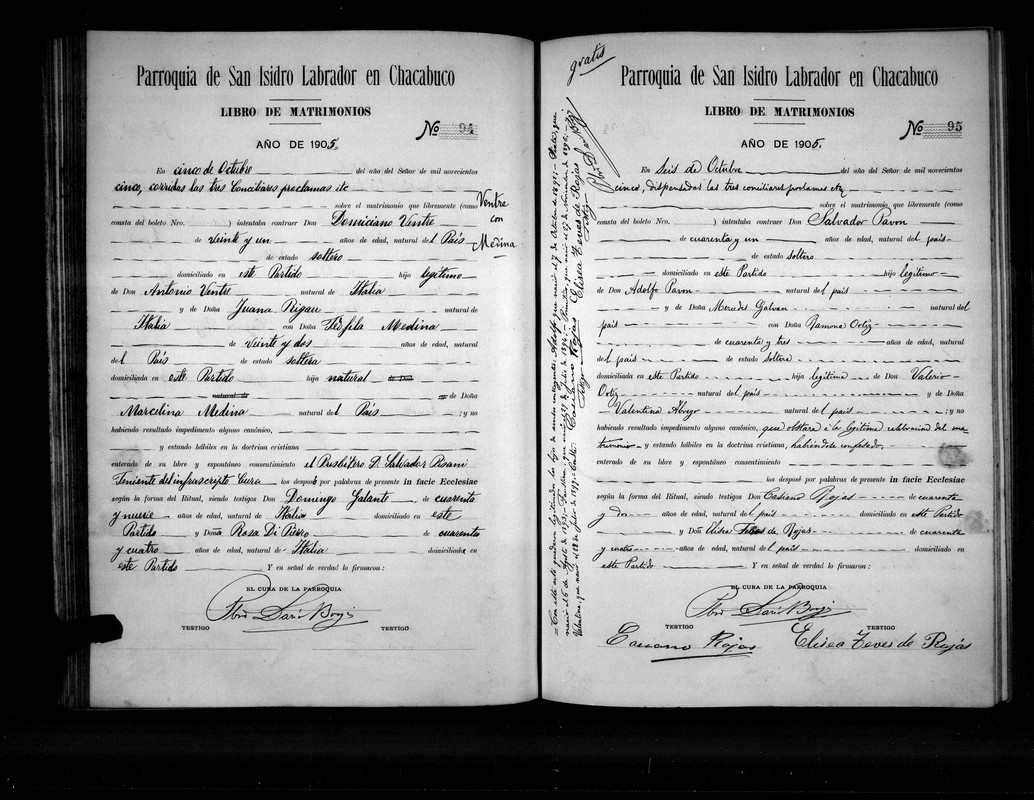 Parroquia de San Isidro Labrador en Chacabuco
LIBRO DE MATRIMONIOS
No 94
AÑO DE 1905.
En cinco de Octubre del año del Señor de mil novecientos
cinco, corridas las tres Conciliares proclamas etc
sobre el matrimonio que libremente (como
Ventre
con
Medina
consta del boleto Nro. ) intentaba contraer Don Domiciano Ventre
de veinte y un años de edad, natural del País
de estado soltero
domiciliado en este Partido hijo legítimo
de Don Antonio Ventre natural de Italia
y de Doña Juana Rigau natural de
Italia con Doña Teófila Medina
de veinte y dos años de edad, natural
del País de estado soltera
domiciliada en este Partido hija natural de Don
natural de de Doña
Marcelina Medina natural del País ; y no
habiendo resultado impedimento alguno canónico,
y estando hábiles en la doctrina cristiana
enterado de su libre y espontáneo consentimiento el Presbítero D. Salvador Pisani
Teniente del infrascripto Cura los desposó por palabras de presente in facie Ecclesiae
según la forma del Ritual, siendo testigos Don Domingo Galante de cuarenta
y nueve años de edad, natural de Italia domiciliado en este
Partido y Doña Rosa Di Pierro de cuarenta
y cuatro años de edad, natural de Italia domiciliados en
este Partido Y en señal de verdad lo firmaron:
EL CURA DE LA PARROQUIA
Pbro Darío Broggi
TESTIGO TESTIGO
gratis
Parroquia de San Isidro Labrador en Chacabuco
LIBRO DE MATRIMONIOS
No 95
AÑO DE 1905.
En Seis de Octubre del año del Señor de mil novecientos
cinco, dispensadas las tres conciliares proclamas etc
sobre el matrimonio que libremente (como
consta del boleto Nro. ) intentaba contraer Don Salvador Pavon
de cuarenta y un años de edad, natural del pais
de estado soltero
domiciliado en este Partido hijo legitimo
de Don Adolfo Pavon natural del pais
y de Doña Mercedes Galvan natural del
pais con Doña Ramona Ortiz
de cuarenta y tres años de edad, natural
del pais de estado soltera
domiciliada en este Partido hija legitima de Don Valerio
Ortiz natural del pais y de Doña
Valentina natural del pais ; y no
habiendo resultado impedimento alguno canónico, que obstara á la legitima celebracion del ma
trimonio y estando hábiles en la doctrina cristiana, habiéndose confesado,
enterado de su libre y espontáneo consentimiento
los desposé por palabras de presente in facie Ecclesiae
según la forma del Ritual, siendo testigos Don Casiano Rojas de cuarenta
y dos años de edad, natural del pais domiciliado en este Partido
y Doña Elisea de Rojas de cuarenta
y cuatro años de edad, natural del pais domiciliado en
este Partido Y en señal de verdad lo firmaron:
EL CURA DE LA PARROQUIA
Pbro Darío Broggi
TESTIGO TESTIGO
Casiano Rojas Elisea Teves de Rojas